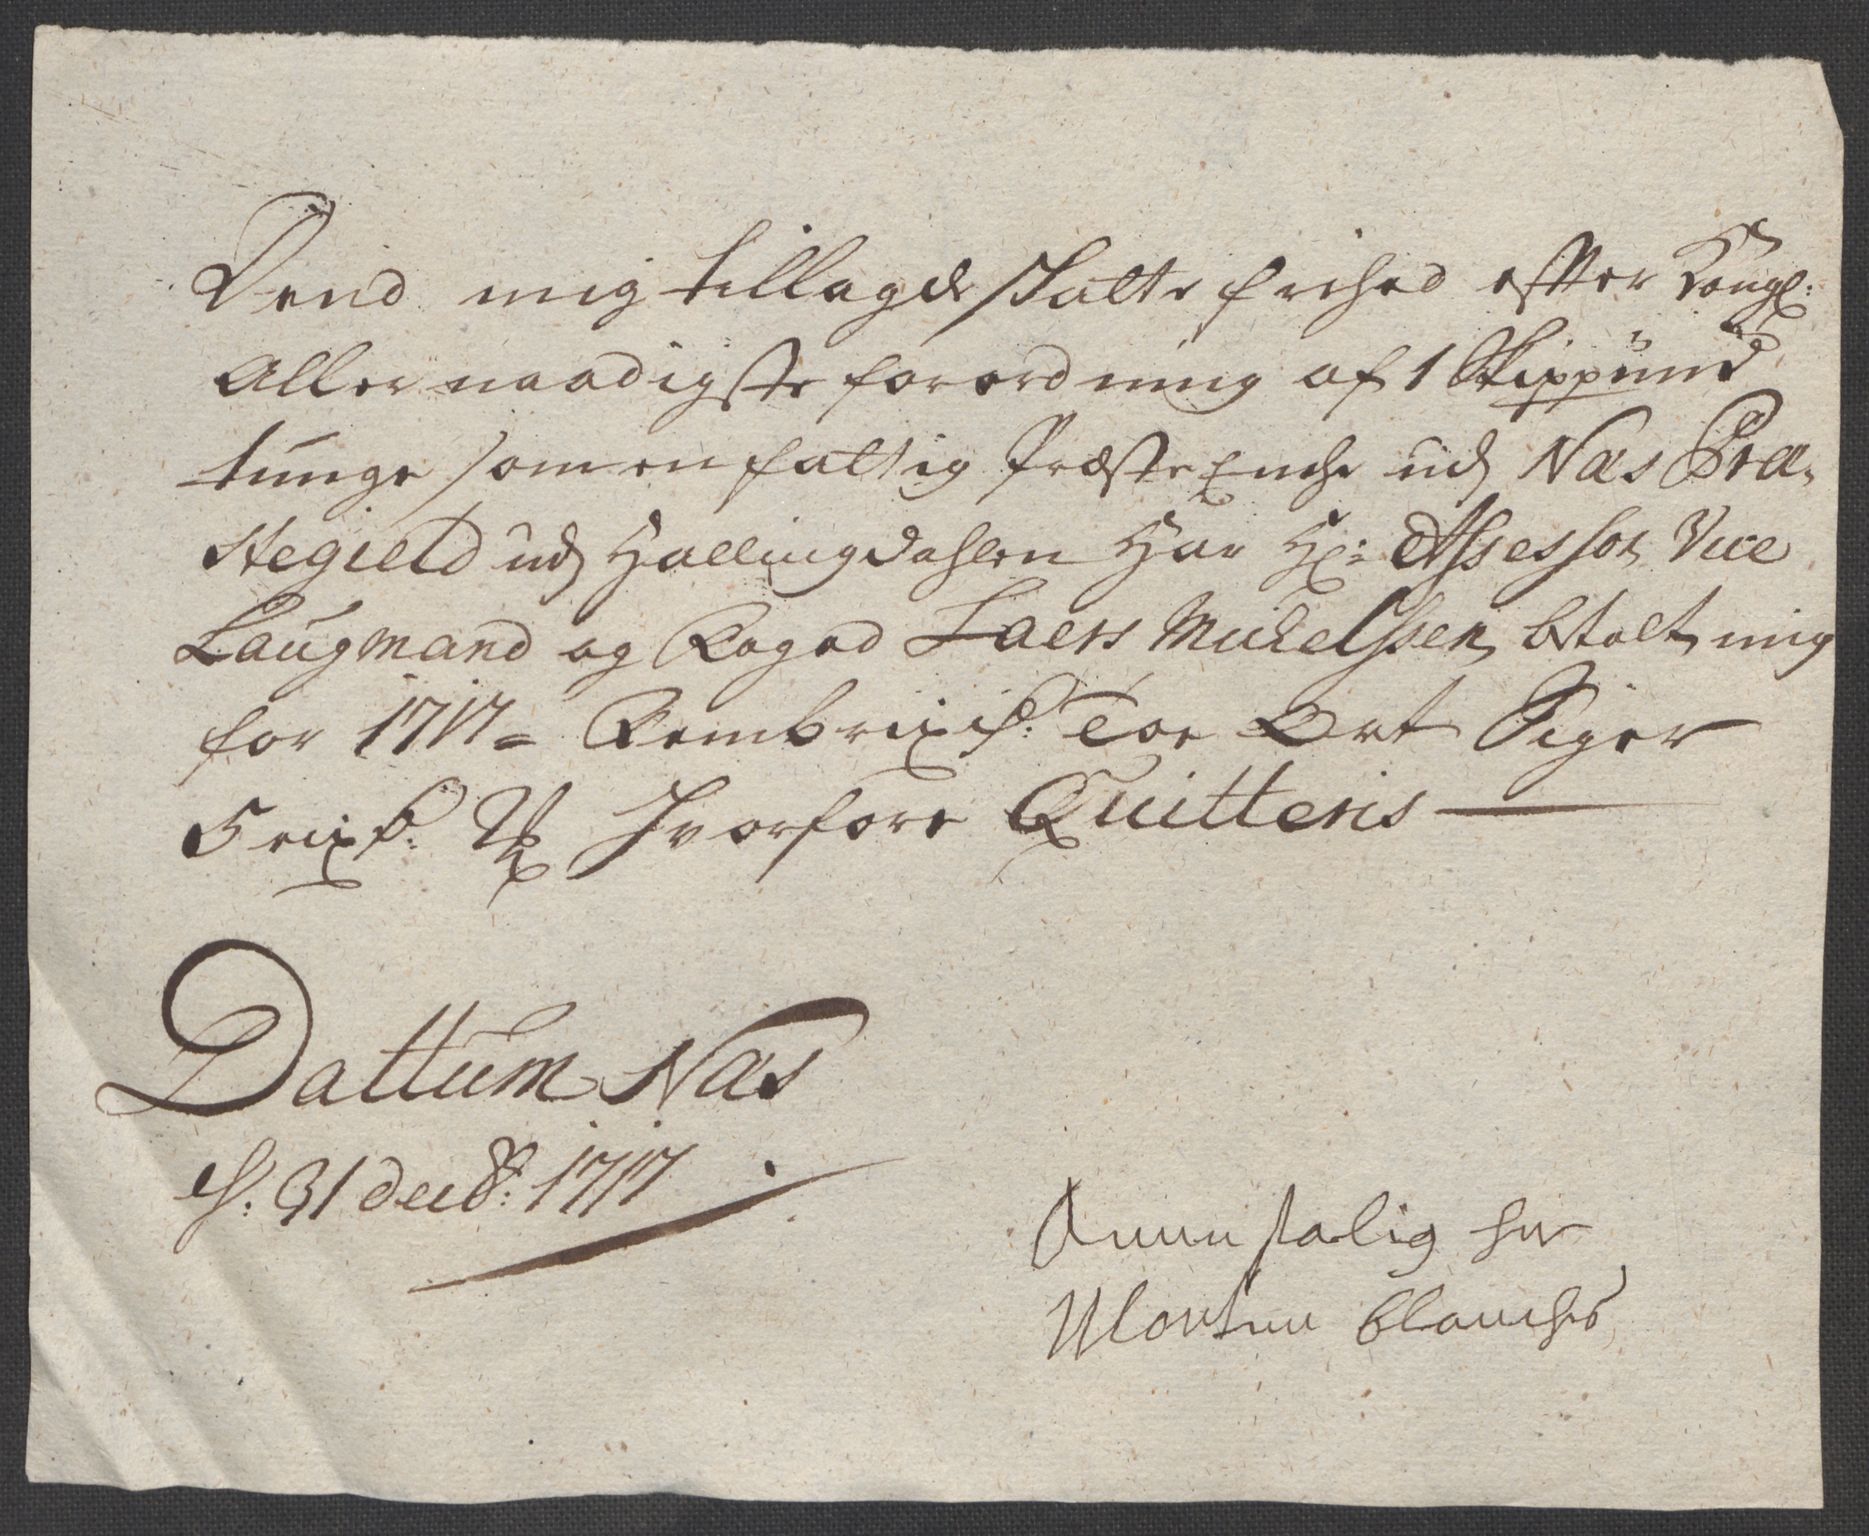 Dend mig tillagde skatte frihed effter Kongl:
Aller naadigste forordning af 1 Skippund
tunge som en fattig Præste Enche udj Næs Præ-
stegield udj Hallingdahlen Har Hr: Assessor Vice
Laugmand og Foged Laers Michelssen betalt mig
for 1717 = Fem rixd: Toe Ort Siger
5 rixd: 2 Hvorfore Quitteris
Dattum Næs
d: 31 decbr: 1717
Anne salig her
Morten